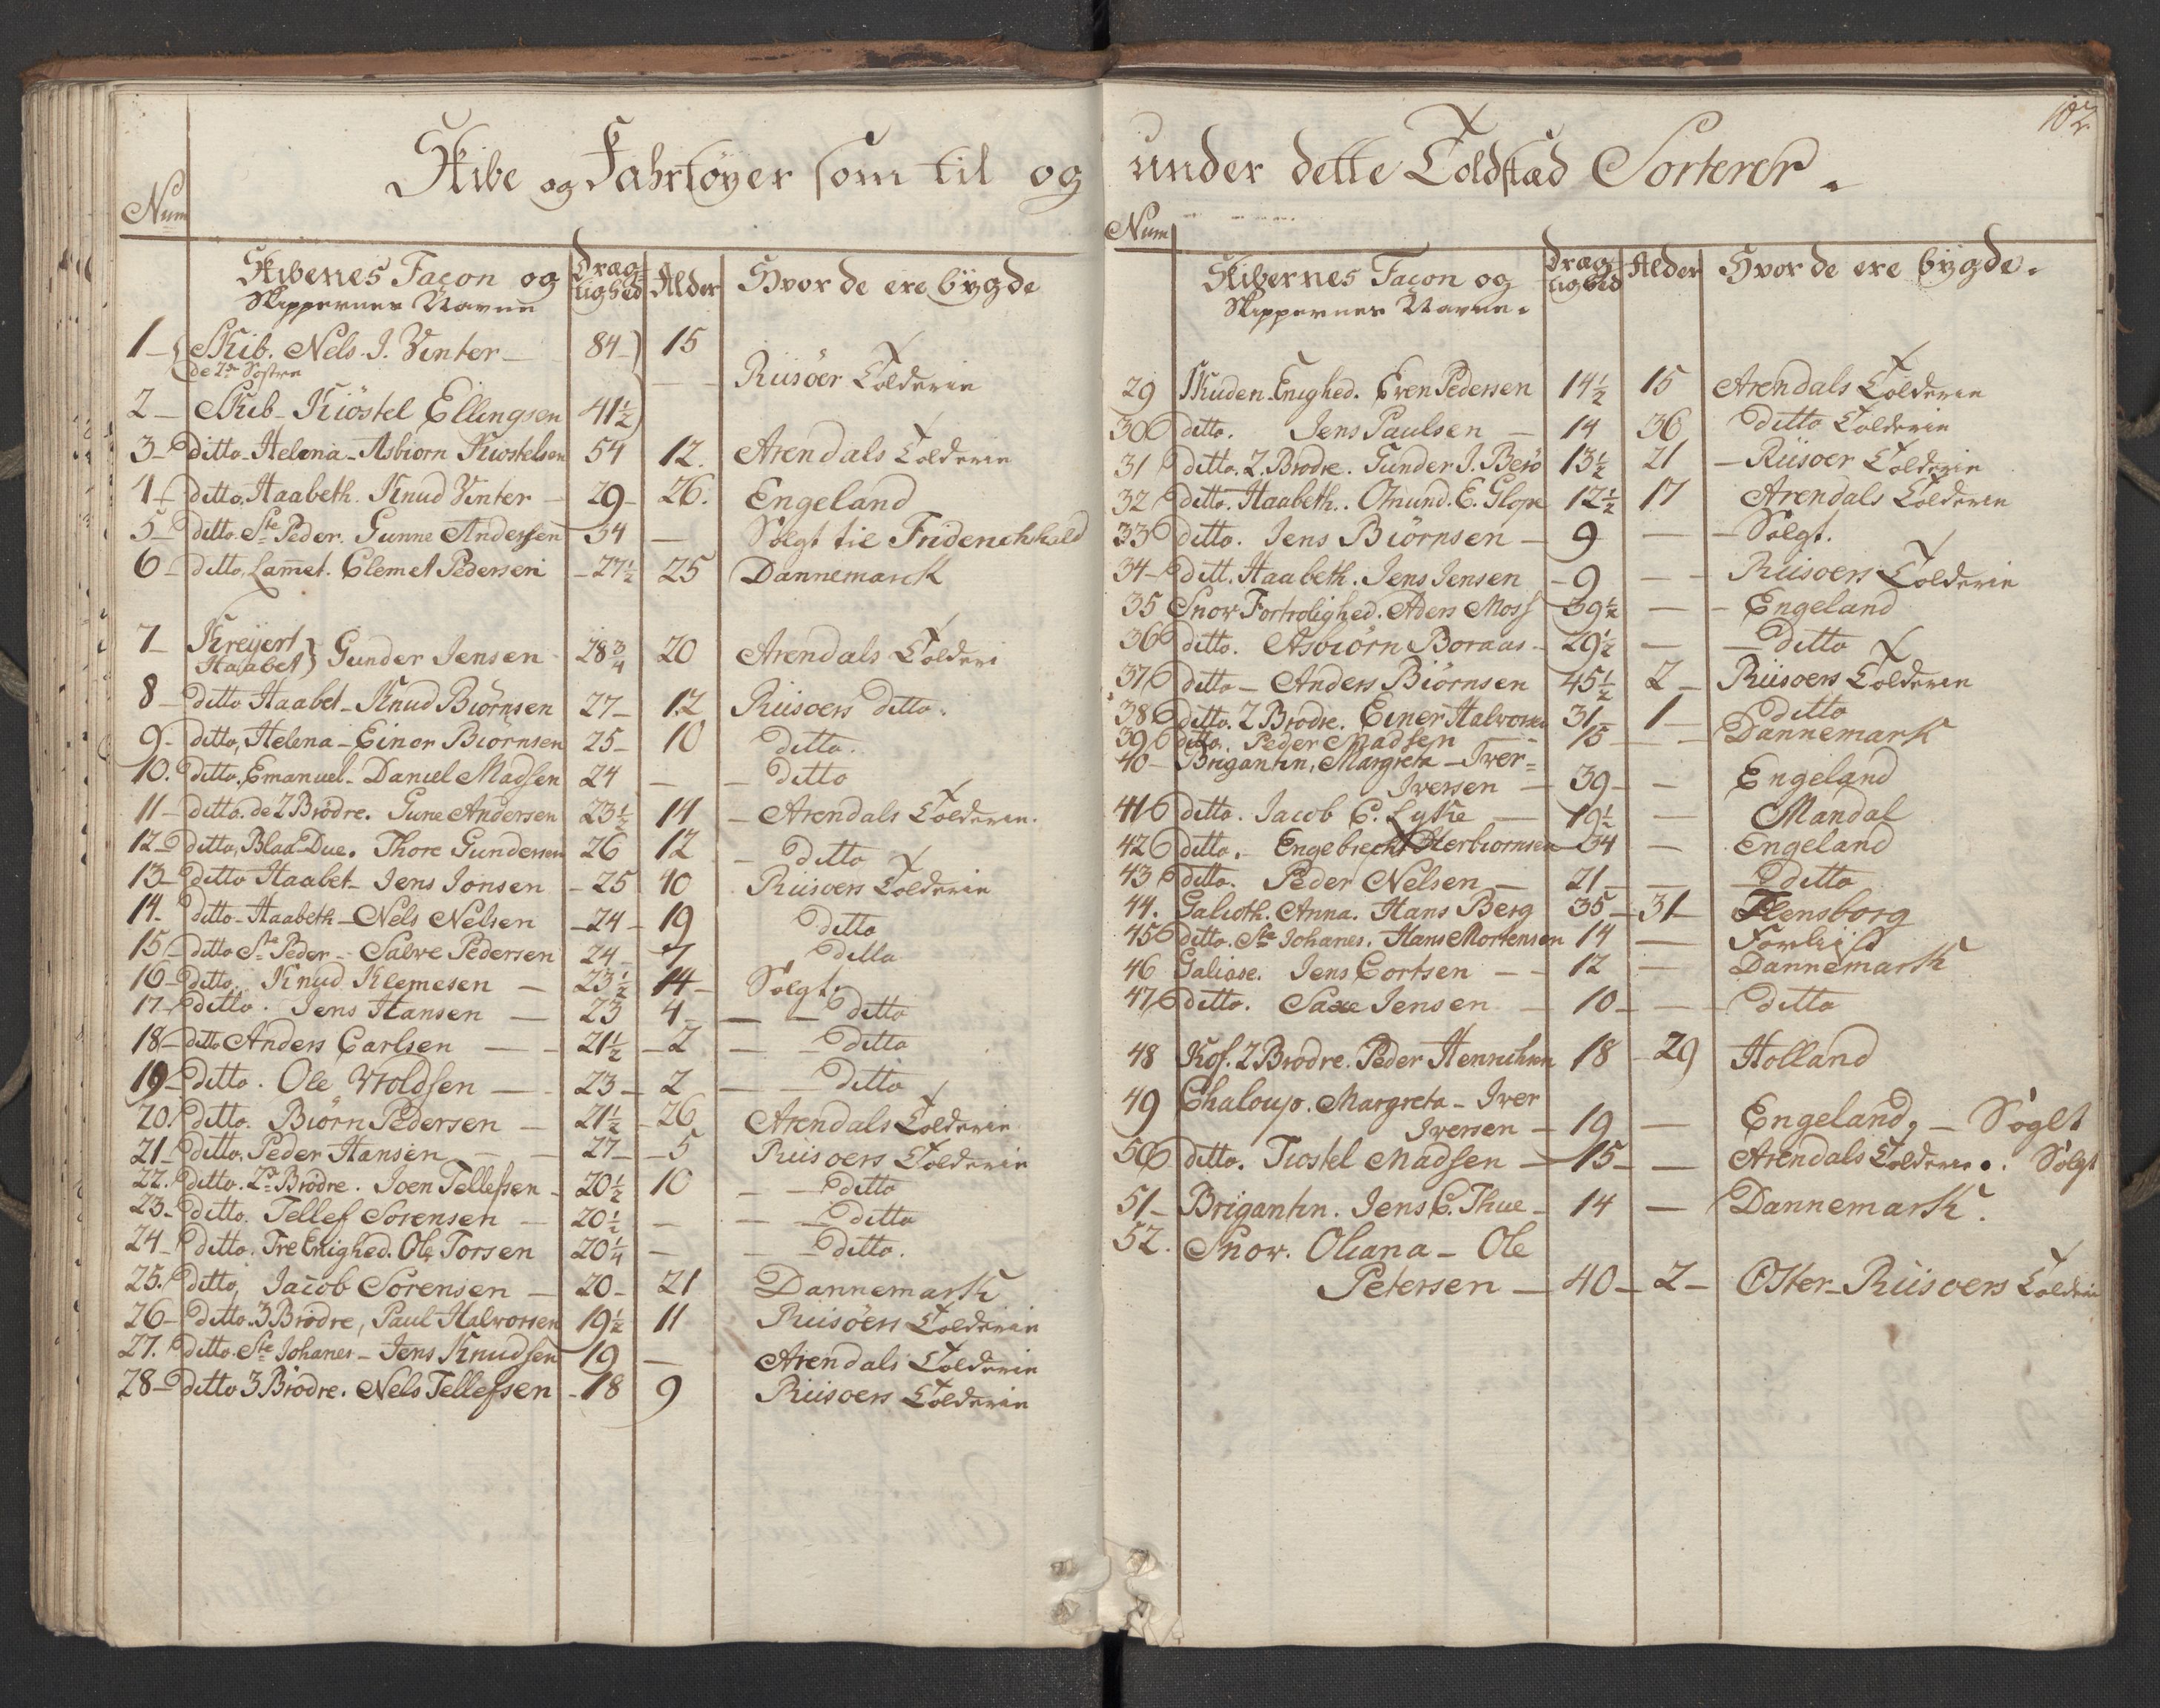 Skibe og Fahrtøyer som til og
Num
Skibenes Facon og Skippernes Navne | Dræg=lighed | Alder | Hvor de ere bygde
1 Skib. Nels J. Vinter 84 15
de 2de Søstre
Riisöer Tolderie
2 Skib Kiöstel Ellingsen 41½
3 ditto Helena Asbiorn Kiostelsen 54 12. Arendals Tolderie
4 ditto. Haabeth. Knud Vinter 29 26. Engeland
5 ditto Ste Peder. Gunne Anderssen 34 — Solgt til Fridenchhald
6 ditto, Lam̄et. Clemet Pedersen 27½ 25 Dannemarck
7 Kreyert Haabet } Gunder Jensen 28¾ 20 Arendals Tolderi
8 ditto Haabet Knud Biörnsen 27 12 Riisoers ditto.
9 ditto, Helena Einor Biörnsen 25 10 ditto.
10. ditto, Emanuel Daniel Madsen 24 — ditto
11 ditto. de 2 Brödre. Gune Andersen 23½ 14 Arendals Tolderie.
12 ditto, Blaa Due. Thore Gundersen 26 12 ditto
13 ditto Haabet Jens Jonsen 25 40 Riisoers Tolderie
14. ditto Haabeth Nels Nelsen 24 19 ditto
15 ditto Ste Peder Salve Pedersen 24 7 ditto
16 ditto. Knud Klemesen 23½ 14 Solgt.
17 ditto. Jens Hansen 23 4 ditto
18 ditto Anders Carlsen 21½ 2 ditto
19 ditto. Ole Woldsen 23 2 ditto
20. ditto. Biörn Pedersen 21½ 26 Arendals Tolderie
21 ditto, Peder Hansen 27 5 Riisoers Tolderie
22. ditto. 2de Brödre. Joen Tellefsen 20½ 10 ditto
23 ditto. Tellef Sorensen 20½ — ditto
24 ditto. Tre Enighed. Ole Torsen 20¼ — ditto.
25. ditto, Jacob Sorensen 20 21 Dannemark
26 ditto. 3 Brödre, Paul Halvorsen 19½ 11 Riisöers Tolderie
27. ditto. Ste Johanes Jens Knudsen 19 — Arendals Tolderie
28 ditto 3 Brödre. Nels Tellefsen 18 9 Riisoers Tolderie
102
under dette Toldstæd Sorterer.
Num
Skibernes Facon og Skippernes Navne. | Dræg=lighed | Alder | Hvor de ere bygde.
29 Skuden Enighed. Even Pedersen 14½ 15 Arendals Tolderie
30 ditto. Jens Paulsen 14 36 ditto Tolderie
31 ditto. 2. Brodre. Gunder J. Berö 13½ 21 Riisoer Tolderie
32 ditto. Haabeth. Omund. E. Glope 12½ 17 Arendals Tolderie
33 ditto. Jens Biörnsen 9 — Solgt.
34 ditt. Haabeth. Jens Jensen 9 — Riisoers Tolderie
35 Snow Fortrolighed. Aders Moss 39½ — Engeland
36 ditto. Asbiörn Boraas 29½ — ditto
37 ditto Anders Biörnsen 45½ 2 Riisoers Tolderie
38 ditto. 2 Brodre. Einer Halvorsen 31 1 ditto
39 ditto. Peder Madsen 15 — Dannemark
40 Brigantin, Margreta Iver=
Iversen 39 — Engeland
41 ditto. Jacob C. Lytke 19½ — Mandal
42 ditto. Engebrecht Herbiornsen 34 — Engeland
43 ditto. Peder Nelsen 21 — ditto
44. Galioth. Anna. Hans Berg 35 31 Flensborg
45 ditto. Ste Johanes. Hans Mortensen 14 — Forliist
46 Galiase. Jens Cortsen 12 — Dannemark
47 ditto. Saxe Jensen 10 — ditto
48 Kof. 2 Brodre. Peder Henrichsen 18 29 Holland
49 Chaloup. Margreta Iver
Iversen 19 — Engeland, — Soglt
50 ditto. Tiostel Madsen 15 — Arendals Tolderie. Solgt
51 Brigantin. Jens C. Thue 14 — Dannemark.
52. Snow. Oliana Ole
Petersen 40 2 Öster Riisoers Tolderie